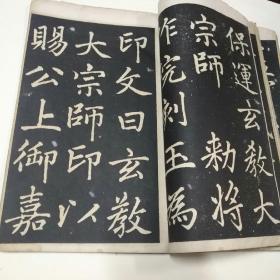 保運玄教大
宗師勅將
作院刻玉為
印文曰玄教
大宗師印以
賜公上御嘉